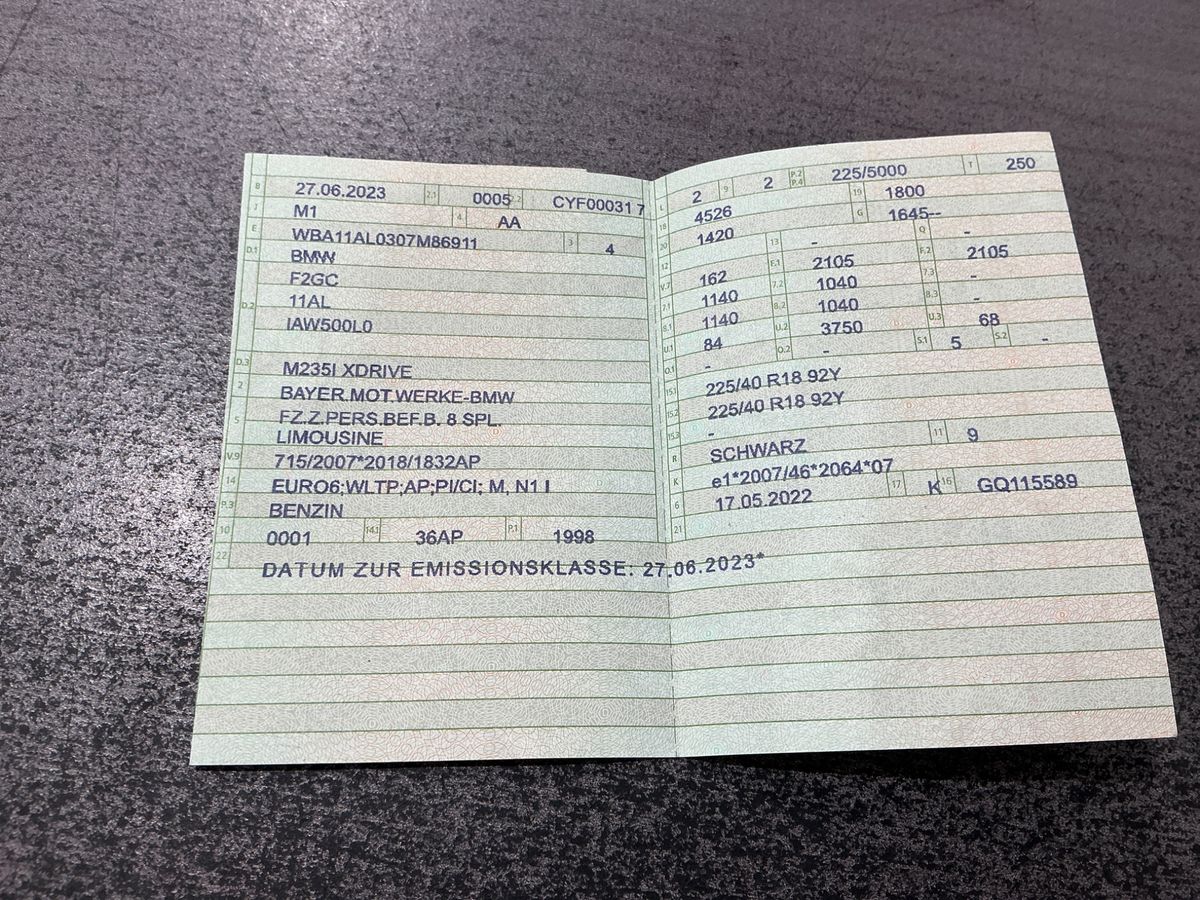 B 27.06.2023 2.1 0005 2.2 CYF00031 7
J M1 4 AA
E WBA11AL0307M86911 3 4
D.1 BMW
D.2 F2GC
11AL
IAW500L0
D.3 M235I XDRIVE
2 BAYER.MOT.WERKE-BMW
5 FZ.Z.PERS.BEF.B. 8 SPL.
LIMOUSINE
V.9 715/2007*2018/1832AP
14 EURO6;WLTP;AP;PI/CI; M, N1 I
P.3 BENZIN
10 0001 14.1 36AP P.1 1998
22 DATUM ZUR EMISSIONSKLASSE: 27.06.2023*
L 2 9 2 P.2 P.4 225/5000 T 250
18 4526 19 1800
20 1420 G 1645--
12 13 - Q -
V.7 162 F.1 2105 F.2 2105
7.1 1140 7.2 1040 7.3 -
8.1 1140 8.2 1040 8.3 -
U.1 84 U.2 3750 U.3 68
O.1 - O.2 - S.1 5 S.2 -
15.1 225/40 R18 92Y
15.2 225/40 R18 92Y
15.3 -
R SCHWARZ 11 9
K e1*2007/46*2064*07
6 17.05.2022 17 K 16 GQ115589
21